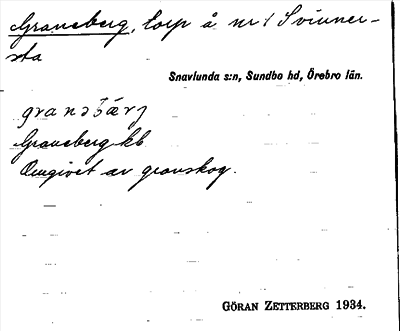 Graneberg, torp å nr 1 Svinner-
sta
Snavlunda s:n, Sundbo hd, Örebro län.
Graneberg kb
Omgivet av granskog.
GÖRAN ZETTERBERG 1934.